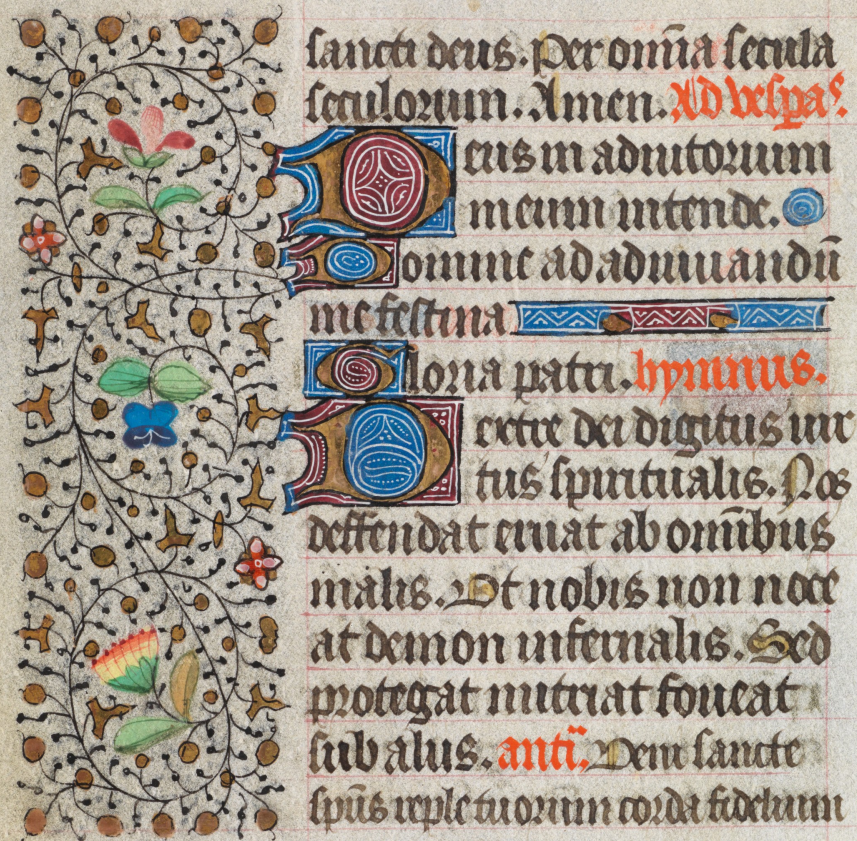 sancti deus. Per om̄ia secula
seculorum. Amen. Ad vesp̄as.
Deus in adiutorium
meum intende.
Domine ad adiuuandū
me festina
Gloria patri. hymnus.
Dextre dei digitus uir
tus spiritualis. Nos
deffendat eruat ab om̄ibus
malis. Ut nobis non noce
at demon infernalis. Sed
protegat nutriat foueat
sub alus. antī. Veni sancte
sp̄us reple tuorum corda fidelium